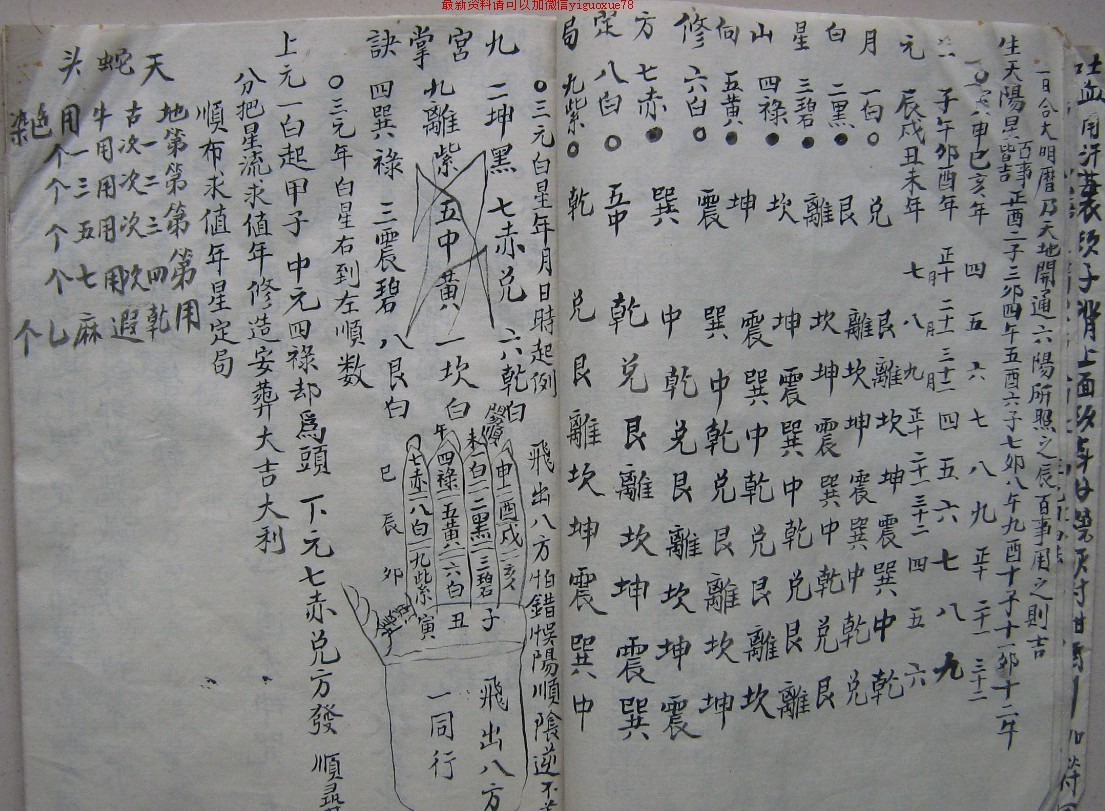 最新资料请可以加微信yiguoxue78
一日合大明曆乃天地開通六陽所照之辰百事用之則吉
百事
正酉二子三卯四午五酉六子七卯八午九酉十子十一卯十二午
申巳亥年 四 五 六 七 八 九 正十 二十一 三十二
子午卯酉年 正十月 二十一月 三十二月 四 五 六 七 八 九
元 辰戌丑未年 七 八 九 正十 二十一 三十二 四 五 六
月 一白 兑 艮 離 坎 坤 震 巽 中 乾
白 二黑 艮 離 坎 坤 震 巽 中 乾 兑
星 三碧 離 坎 坤 震 巽 中 乾 兑 艮
山 四禄 坎 坤 震 巽 中 乾 兑 艮 離
向 五黄 坤 震 巽 中 乾 兑 艮 離 坎
修 六白 震 巽 中 乾 兑 艮 離 坎 坤
方 七赤 巽 中 乾 兑 艮 離 坎 坤 震
定 八白 五中 乾 兑 艮 離 坎 坤 震 巽
局 九紫 乾 兑 艮 離 坎 坤 震 巽 中
三元白星年月日時起例 飛出八方怕錯悮陽順陰逆不
九 二坤黑 七赤兑 六乾白
宮 九離紫 五中黄 一坎白
掌
訣 四巽禄 三震碧 八艮白
申 酉 戌 亥
未 一白 二黑 三碧 子
午 四禄 五黄 六白 丑
七赤 八白 九紫 寅
巳 辰 卯
飛出八方
一同行
三元年白星右到左順数
上元一白起甲子 中元四禄却為頭 下元七赤兑方發 順尋
分把星流求值年 修造安葬大吉大利
順布求值年星定局
天 地第第第第用
蛇 古次一二三四乾
牛用用用次次用遐
头 用一三五七麻